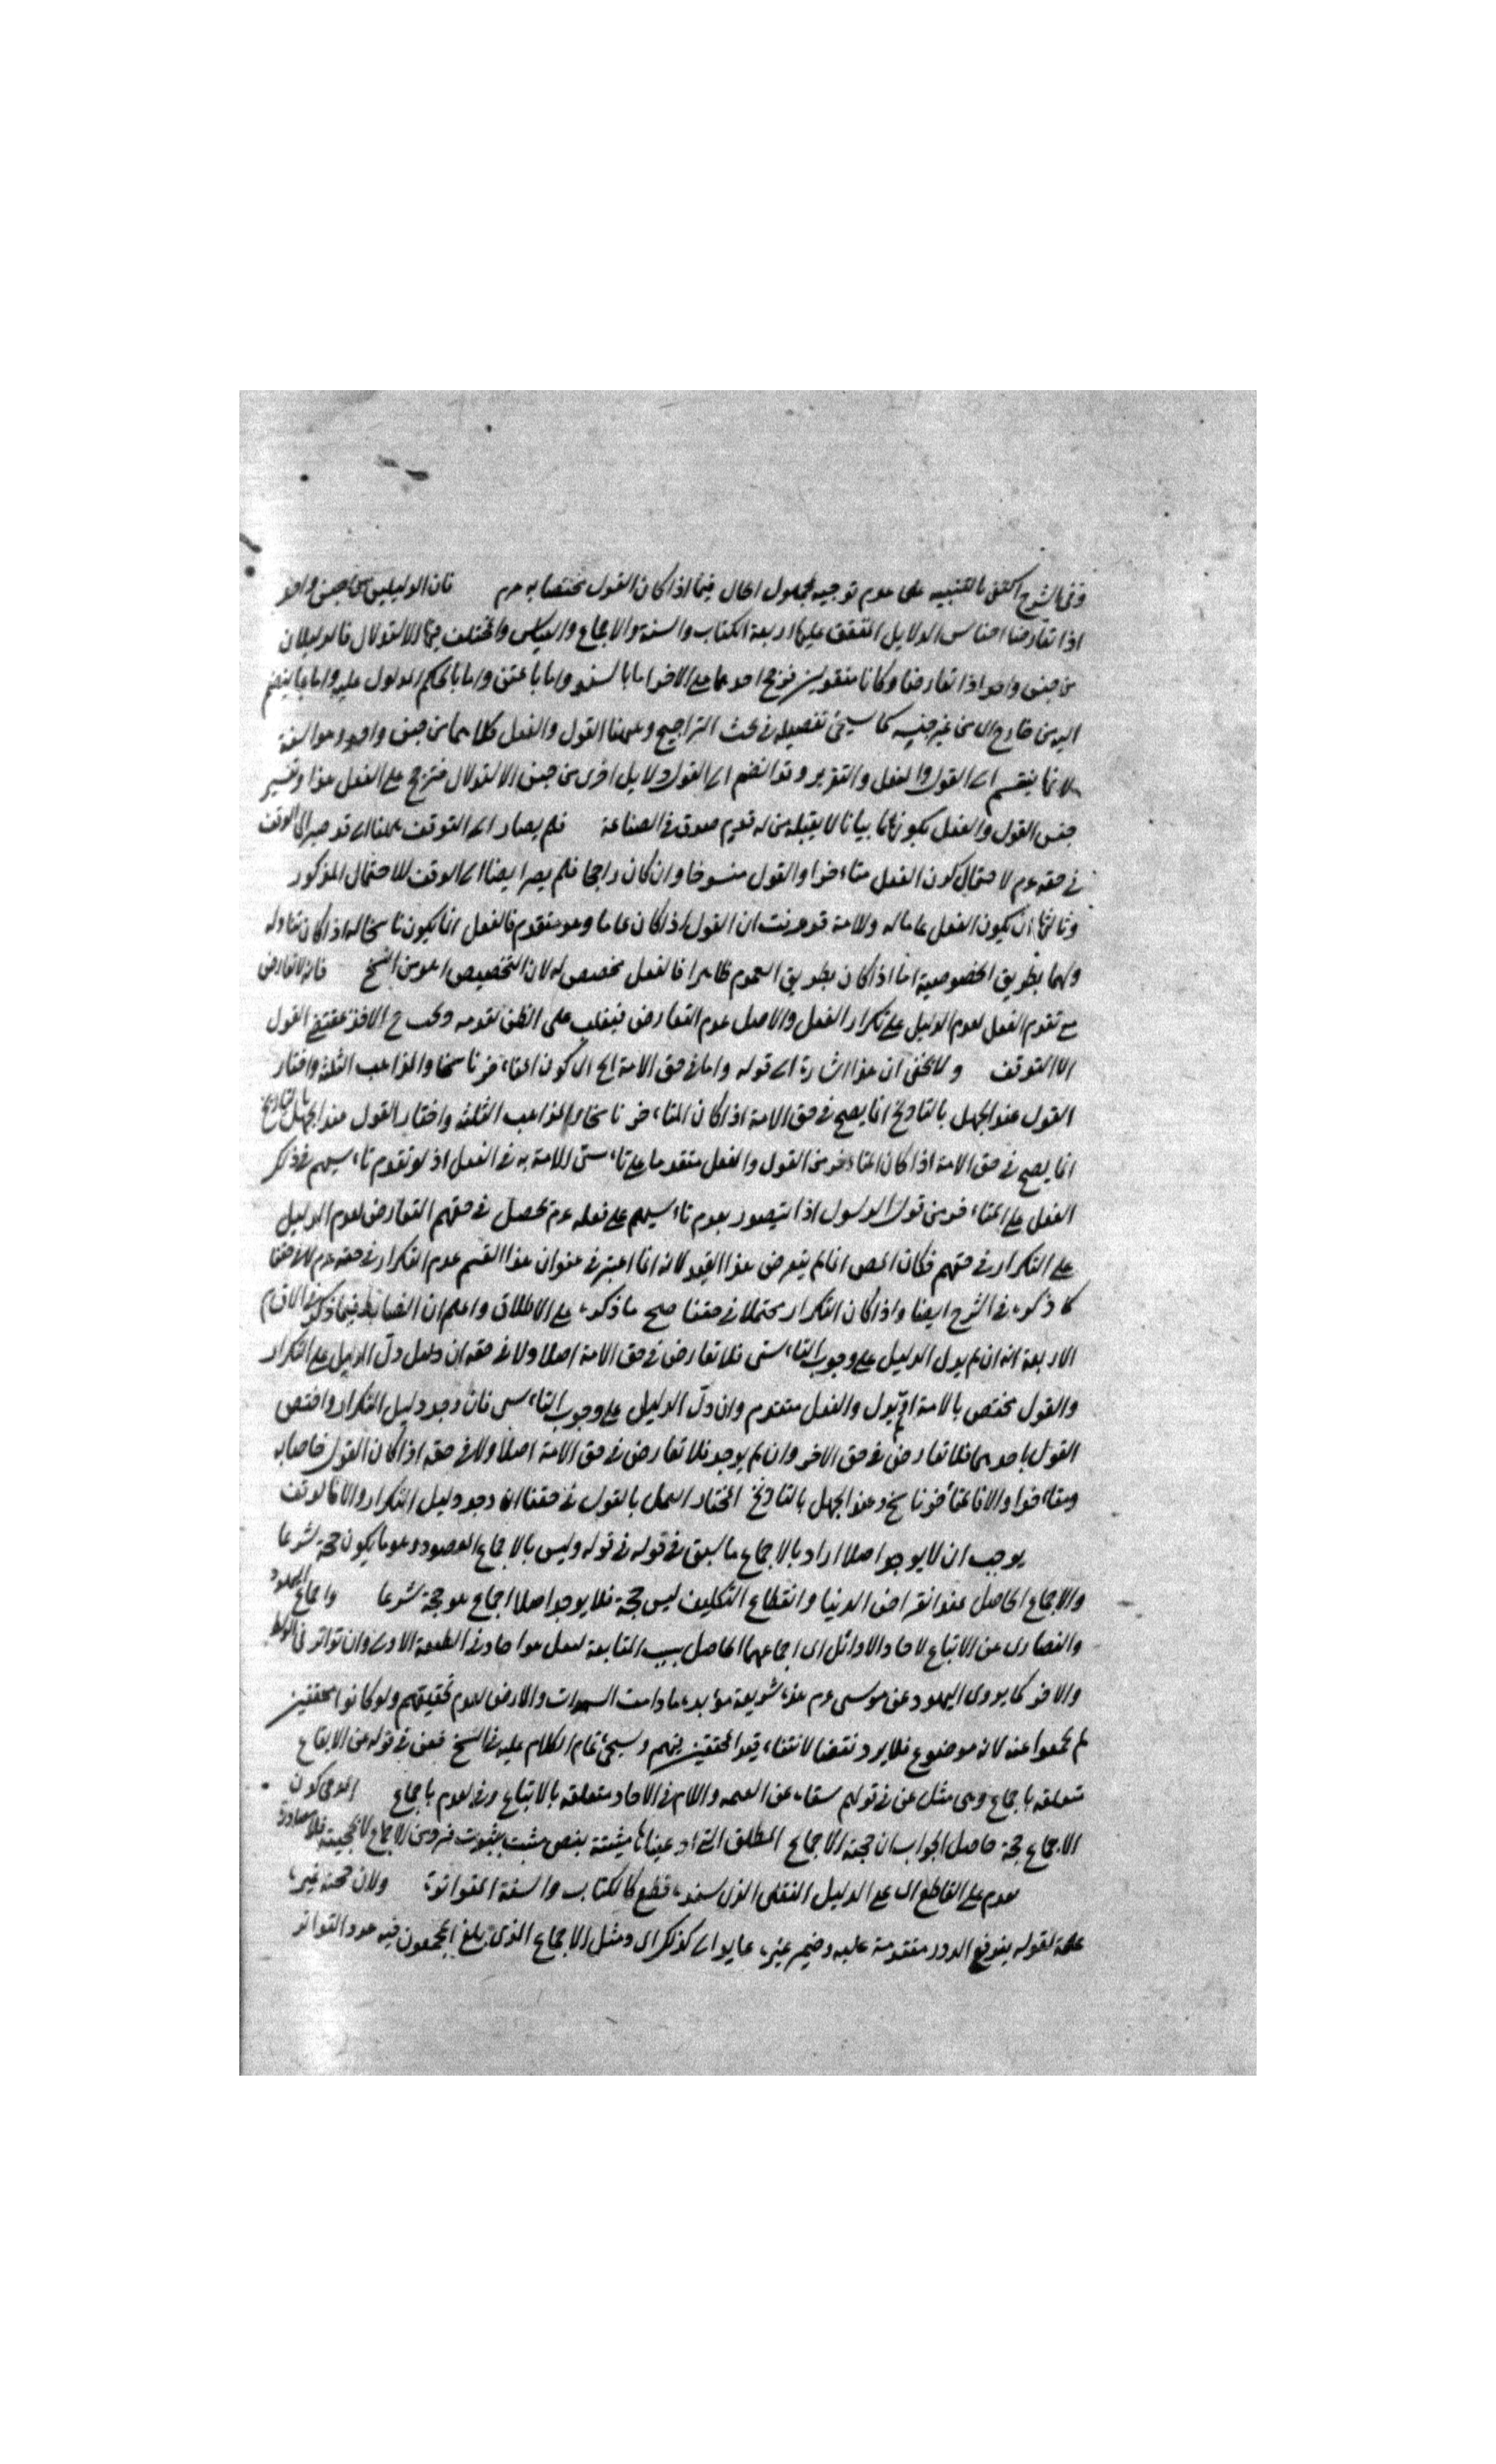 وفي الشرح اكتفى بالتنبيه على عدم توجيه لمجهول الحال فيما اذا كان القول مختصا به عم فان الدليلين من جنس واحد
اذا تعارضا اجناس الدلايل المتفق عليها اربعة الكتاب والسنة والاجماع والقياس والمختلف فيها الاستدلال فالدليلان
من جنس واحد اذا تعارضا وكانا منقولين فترجح احدهما على الاخر اما بالسند واما بالمتن واما بالحكم المدلول عليه واما بما ينضم
اليه من خارج اى من غير جنسه كما سيجئ تفصيله في بحث التراجيح وههنا القول والفعل كلاهما من جنس واحد وهو السنة
لانها ينقسم الى القول والفعل والتقرير وقد انضم الى القول دلايل اخرى من جنس الاستدلال فترجح على الفعل هذا وتفسير
جنس القول والفعل بكونهما بيانا لا يقبله من له قديم صدق في الصناعة فلم يصار الى التوقف ههنا اى قد صير الى الوقف
في حقه عم لاحتمال كون الفعل متاخرا والقول منسوخا وان كان راجحا فلم يصر ايضا الى الوقف للاحتمال المذكور
وثالثها ان يكون الفعل عاما له وللامة قد عرفت ان القول اذا كان عاما وهو متقدم فالفعل انما يكون ناسخا له اذا كان تناوله
ولهما بطريق الخصوصية اما اذا كان بطريق العموم ظاهرا فالفعل مخصص له لان التخصيص اهون من النسخ فانه لا تعارض
مع تقدم الفعل لعدم الدليل على تكرار الفعل والاصل عدم التعارض فيغلب على الظن تقدمه ويجب ح الاخذ بمقتضى القول
لا التوقف ولا يخفى ان هذا اشارة الى قوله واما في حق الامة الخ اى كون المتاخر ناسخا والمذاهب الثلثة واختار
القول عند الجهل بالتاريخ انما يصح في حق الامة اذا كان المتاخر ناسخا والمذاهب الثلثة واختار القول عند الجهل بالتاريخ
انما يصح في حق الامة اذا كان المتاخر من القول والفعل متقدما على تاسي الامة به في الفعل اذ لو تقدم تاسيهم في ذلك
الفعل على المتاخر من قول الرسول اذا لم يتصور بعدم تاسيهم على فعله عم لم يحصل في حقهم التعارض لعدم الدليل
على التكرار في حقهم فكان المص انما لم يتعرض لهذا القيد لانه انما اعتبر في عنوان هذا القسم عدم التكرار في حقه عم لا في حقنا
كما ذكره في الشرح ايضا واذا كان التكرار محتملا في حقنا صح ما ذكره على الاطلاق واعلم ان الضابط فيما ذكر من الاقسام
الاربعة انه ان لم يدل الدليل على وجوب التاسي فلا تعارض في حق الامة اصلا ولا في حقه ان دل الدليل على التكرار
والقول مختص بالامة او لم يدل والفعل متقدم وان دل الدليل على وجوب التاسي فان وجد دليل التكرار واختص
القول باحدهما فلا تعارض في حق الاخر وان لم يوجد فلا تعارض في حق الامة اصلا ولا في حقه اذا كان القول خاصا به
ومتاخرا والا فالمتأخر ناسخ وعند الجهل بالتاريخ المختار العمل بالقول في حقنا ان وجد دليل التكرار والا فالوقف
يوجب ان لا يوجد اصلا اراد بالاجماع ما سبق في قوله وليس بالاجماع المقصود وهو ما يكون حجة شرعا
والاجماع الحاصل عند انقراض الدنيا وانقطاع التكليف ليس حجة فلا يوجد اصلا اجماع هو حجة شرعا واجماع اليهود
والنصارى عن الاتباع لاحاد الاوائل اى اجماعهما الحاصل بسبب المتابعة لعمل هو احاد في الطبقة الاولى وان تواتر في الوسط
والاخر كما يروى اليهود عن موسى عم هذه شريعة مؤبدة ما دامت السموات والارض لعدم تحقيقهم ولو كانوا محققين
لم يجمعوا عنه لانه موضوع فلا يرد نقضا لانتفاء قيد المحققين فيهم وسيجئ تمام الكلام عليه في النسخ فعن في قوله عن الاتباع
متعلقه باجماع وهى مثل عن في قولهم سقاه عن العيمه واللام في لاحاد متعلقة بالاتباع وفي لعدم باجماع المدعى كون
الاجماع حجة حاصل الجواب ان حجية الاجماع المطلق التى ادعيناها مثبتة بنص مثبت بثبوت فرد من الاجماع لا بحجيته فلا مصادرة
تقدم على القاطع اى على الدليل النقلى الذى سنده قطع كالكتاب والسنة المتواترة ولان صحة غيره
علة لقوله يندفع الدور متقدمة عليه وضمير غيره عايد الى كذلك اى ومثل الاجماع الذى بلغ المجمعون فيه عدد التواتر